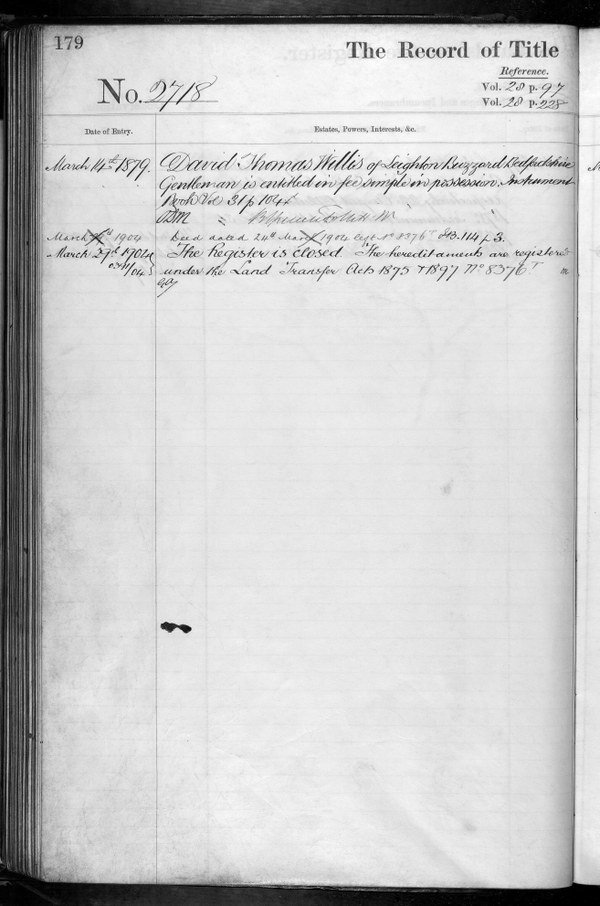 179
The Record of Title
Reference.
No. 2718
Vol. 28 p. 97
Vol. 28 p. 228
Date of Entry.
Estates, Powers, Interests, &c.
March 14th 1879. David Thomas Willis of Leighton Buzzard Bedfordshire
Gentleman is entitled in fee simple in possession. Instrument
Book Vol 31 p 104
March 1904 Deed dated 24th March 1904 Cert No 8376 114 p 3.
March 29th 1904 The Register is closed. The hereditaments are registered
under the Land Transfer Acts 1875 & 1897 No 8376